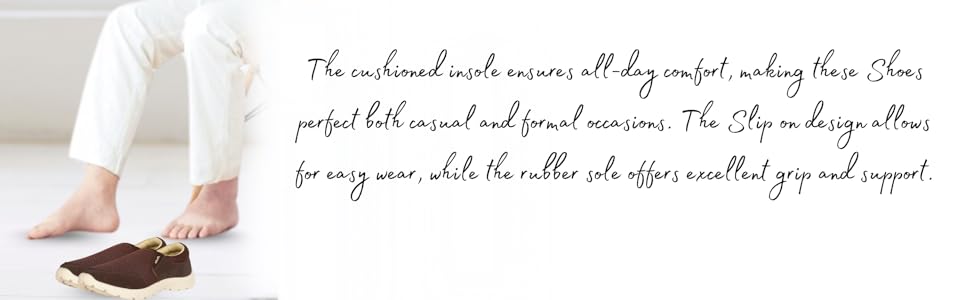 The cushioned insole ensures all-day comfort, making these Shoes
perfect both casual and formal occasions. The Slip on design allows
for easy wear, while the rubber sole offers excellent grip and support.